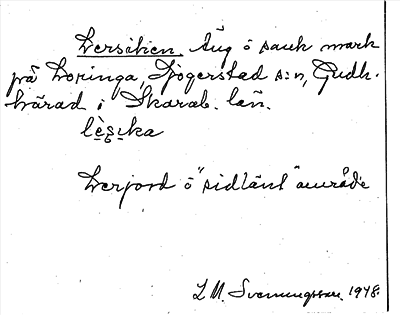 Lersiken. Äng o sank mark
på Loringa, Djogerstad s:n, Gudh.
härad i Skarab. län.
lèsika
Lerjord o "sidlänt" område
L M. Svenungsson. 1948.